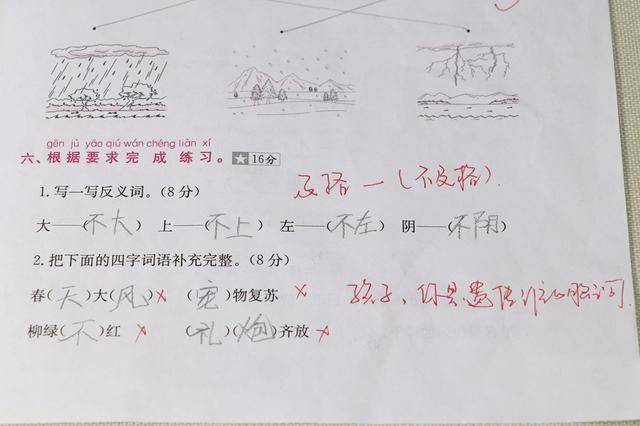 gēn jù yāo qiú wán chéng liàn xí
六、根据要求完成练习。★16分
1.写一写反义词。(8分) 及格—(不及格).
大——(不大) 上——(不上) 左——(不左) 阴——(不阴)
2.把下面的四字词语补充完整。(8分)
春(天)大(风)× (宠)物复苏 × 孩子、你是遗传
柳绿(不)红 × (礼)(炮)齐放 ×